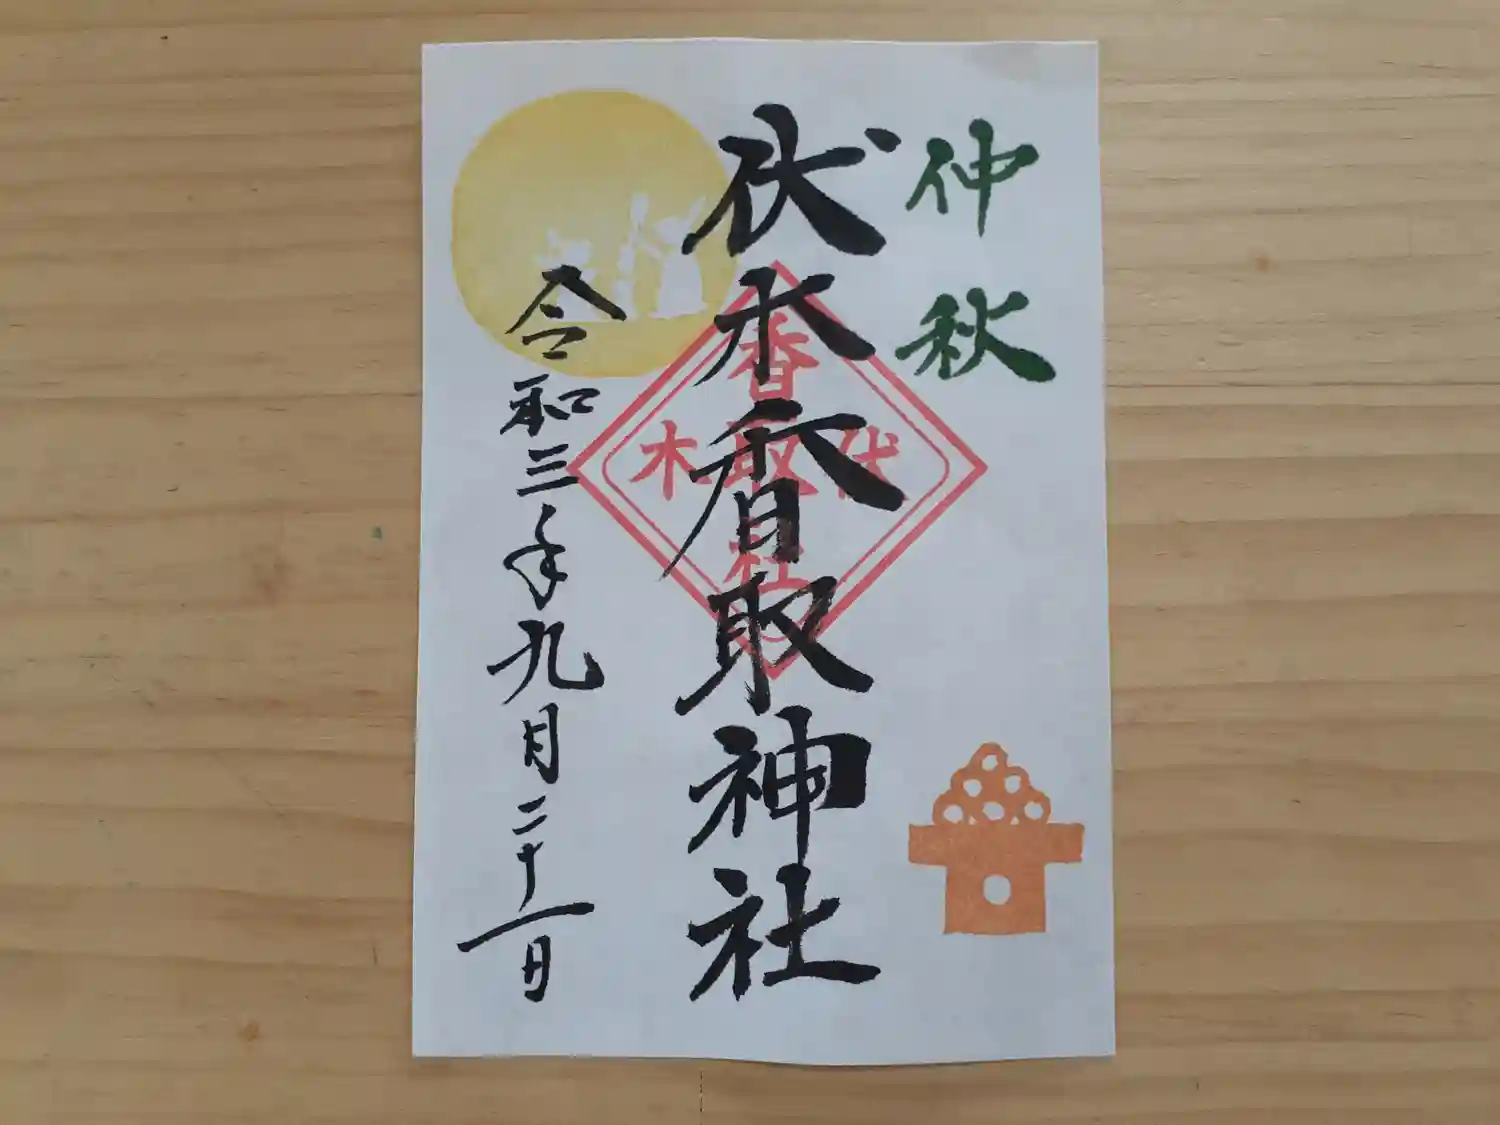 仲秋
伏木香取神社
令和三年九月二十一日
香取社
伏木